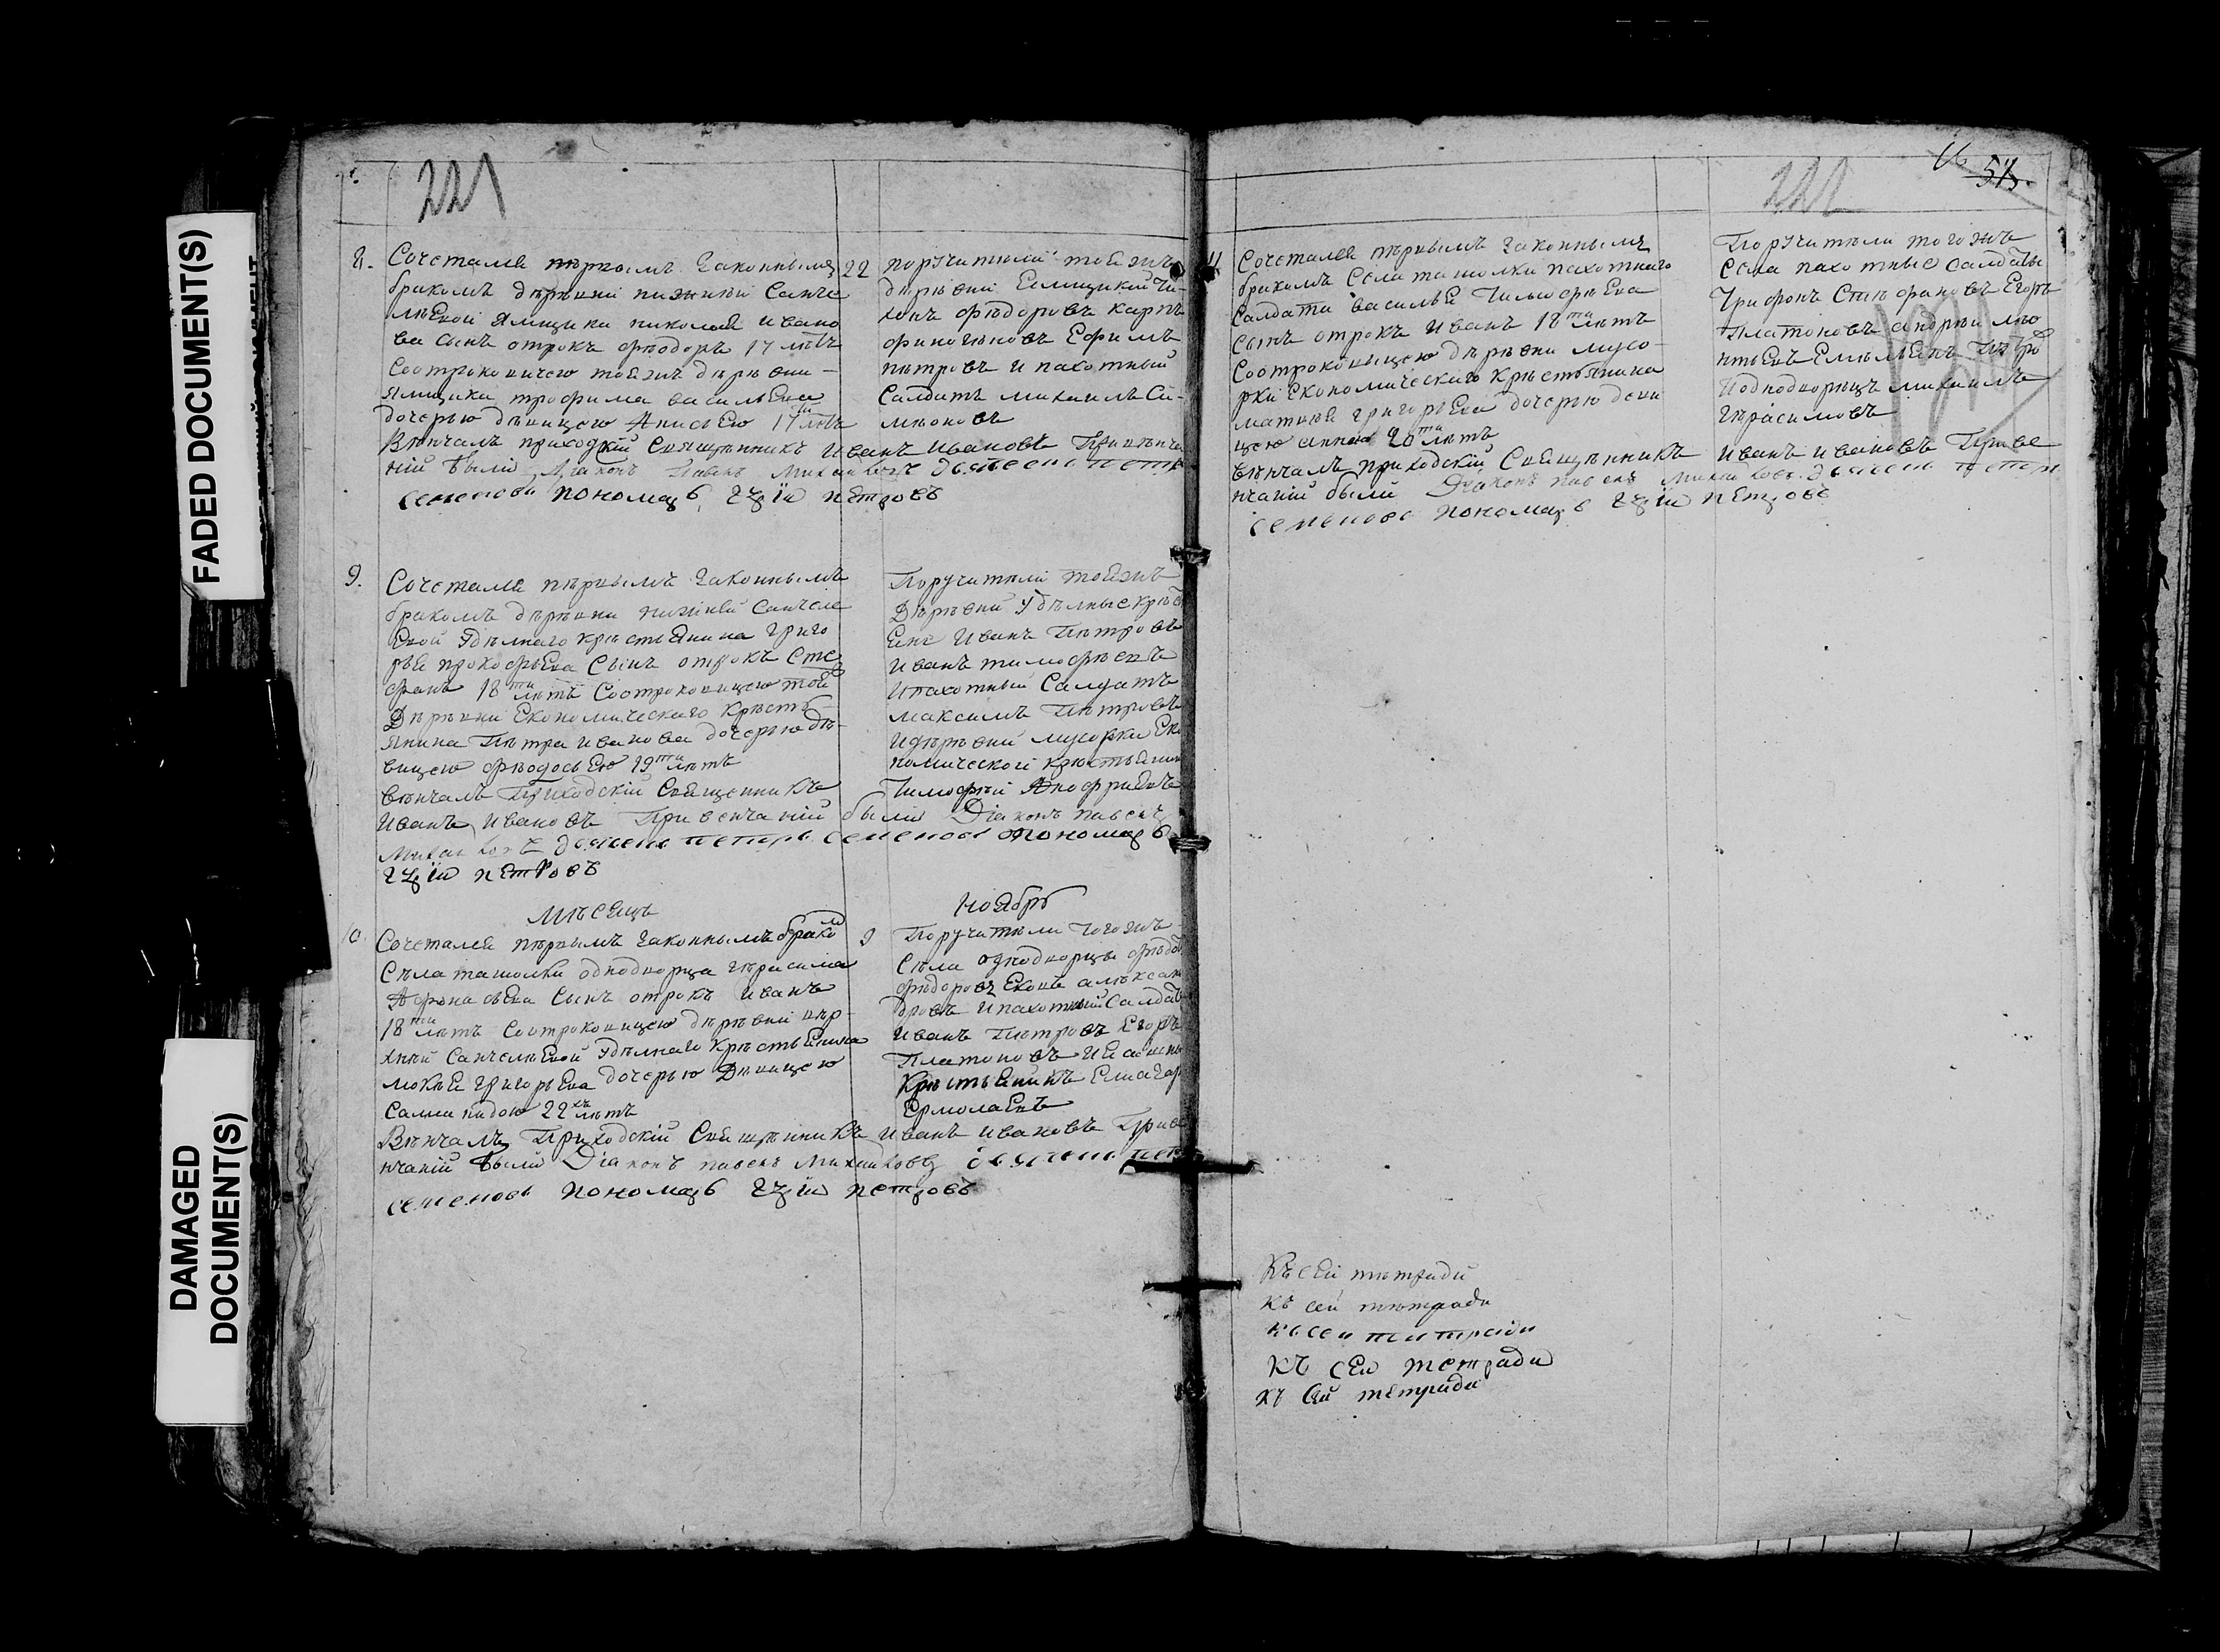 FADED DOCUMENT(S)
DAMAGED
DOCUMENT(S)
221
8. Сочетался пѣрвымъ Законнымъ 22
бракомъ дѣрѣвни нижнѣй Санче
лѣевой Ямщика николая ивано
ва сынъ отрокъ фѣодоръ 17 лѣтъ
Соотроковицею тоеяжъ дѣрѣвни
Ямщика трофима васильева
дочерью дѣвицею Анисьею 17 лѣтъ
Вѣнчалъ приходскій Священникъ Иванъ Ивановъ При вѣнча
ніи были Діаконъ Павелъ Михайловъ дьячекъ петръ
семеновъ пономарь петровъ
поручители тоеяжъ
дѣрѣвни Емщики Ти-
хонъ фѣдоровъ карпъ
финогѣновъ Ефимъ
пѣтровъ и пахотный
Салдатъ михаилъ Си-
мѣоновъ
9. Сочетался пѣрвымъ Законнымъ
бракомъ дѣрѣвни нижнѣй Санчеле
Евой Удѣлнаго крѣстьянина Григо
рья прокофьева Сынъ отрокъ Сте
фанъ 18ти лѣтъ Соотроковицею той
Дѣрѣвни Економическаго Крѣсть-
янина Пѣтра иванова дочерью дѣ-
вицею фѣодосьею 19ти лѣтъ
вѣнчалъ Приходскій Священникъ
Иванъ Ивановъ При венчаніи были Діаконъ павелъ
Михайловъ дьячекъ петръ семеновъ пономарь
петровъ
Поручители тоеяжъ
Дѣрѣвни Удѣлные крѣсть
Ене Иванъ Пѣтровъ
Иванъ тимофѣевъ
Ипахотный Салдатъ
максимъ Пѣтровъ
Идѣрѣвни мусорки Еко
номической крѣстьянинъ
Тимофѣй
мѣсецъ Ноябрь
10. Сочетался пѣрвымъ Законнымъ бракомъ 9
Сѣла ташолки однодворца гѣрасима
Афонасьева Сынъ отрокъ Иванъ
18ти лѣтъ Соотроковицею дѣрѣвни вѣр-
хнѣй Санчелѣевой Удѣлнаго Крѣстьянина
мокѣя григорьева дочерью Дѣвицею
Саламанидою 22хъ лѣтъ
Вѣнчалъ Приходскій Священникъ Иванъ Ивановъ Приве
нчаніи были Діаконъ павелъ Михайловъ дьячекъ пет
семеновъ пономарь петровъ
Поручители тогожъ
Сѣла однодворцы
фѣдоровъ Яковъ алѣксан
дровъ Ипахотный Салдатъ
Иванъ Пѣтровъ Егоръ
Платоновъ
Крѣстьянинъ
Ермолаевъ
57
11 Сочетался пѣрвымъ Законнымъ
бракомъ Села ташолки пахотнаго
Салдата василья Тимофѣева
сынъ отрокъ Иванъ 18ти лѣтъ
Соотроковицею дѣрѣвни мусо-
рки Економическаго Крѣстьянина
матвѣя григорьева дочерью деви
цею Анною 20ти лѣтъ
вѣнчалъ приходскій Священникъ Иванъ Ивановъ Приве
нчаніи были Діаконъ павелъ Михайловъ дьячекъ петръ
семеновъ пономарь петровъ
Поручители тогожъ
Села пахотные салдаты
Трифонъ Стефановъ Егоръ
Платоновъ Андрѣй лѣо
нтьевъ Емельянъ
Иоднодворецъ михаилъ
Гѣрасимовъ
Къ сей тѣтради
къ сей тѣтради
къ сей тетради
къ сей тетради
къ Сей тетради